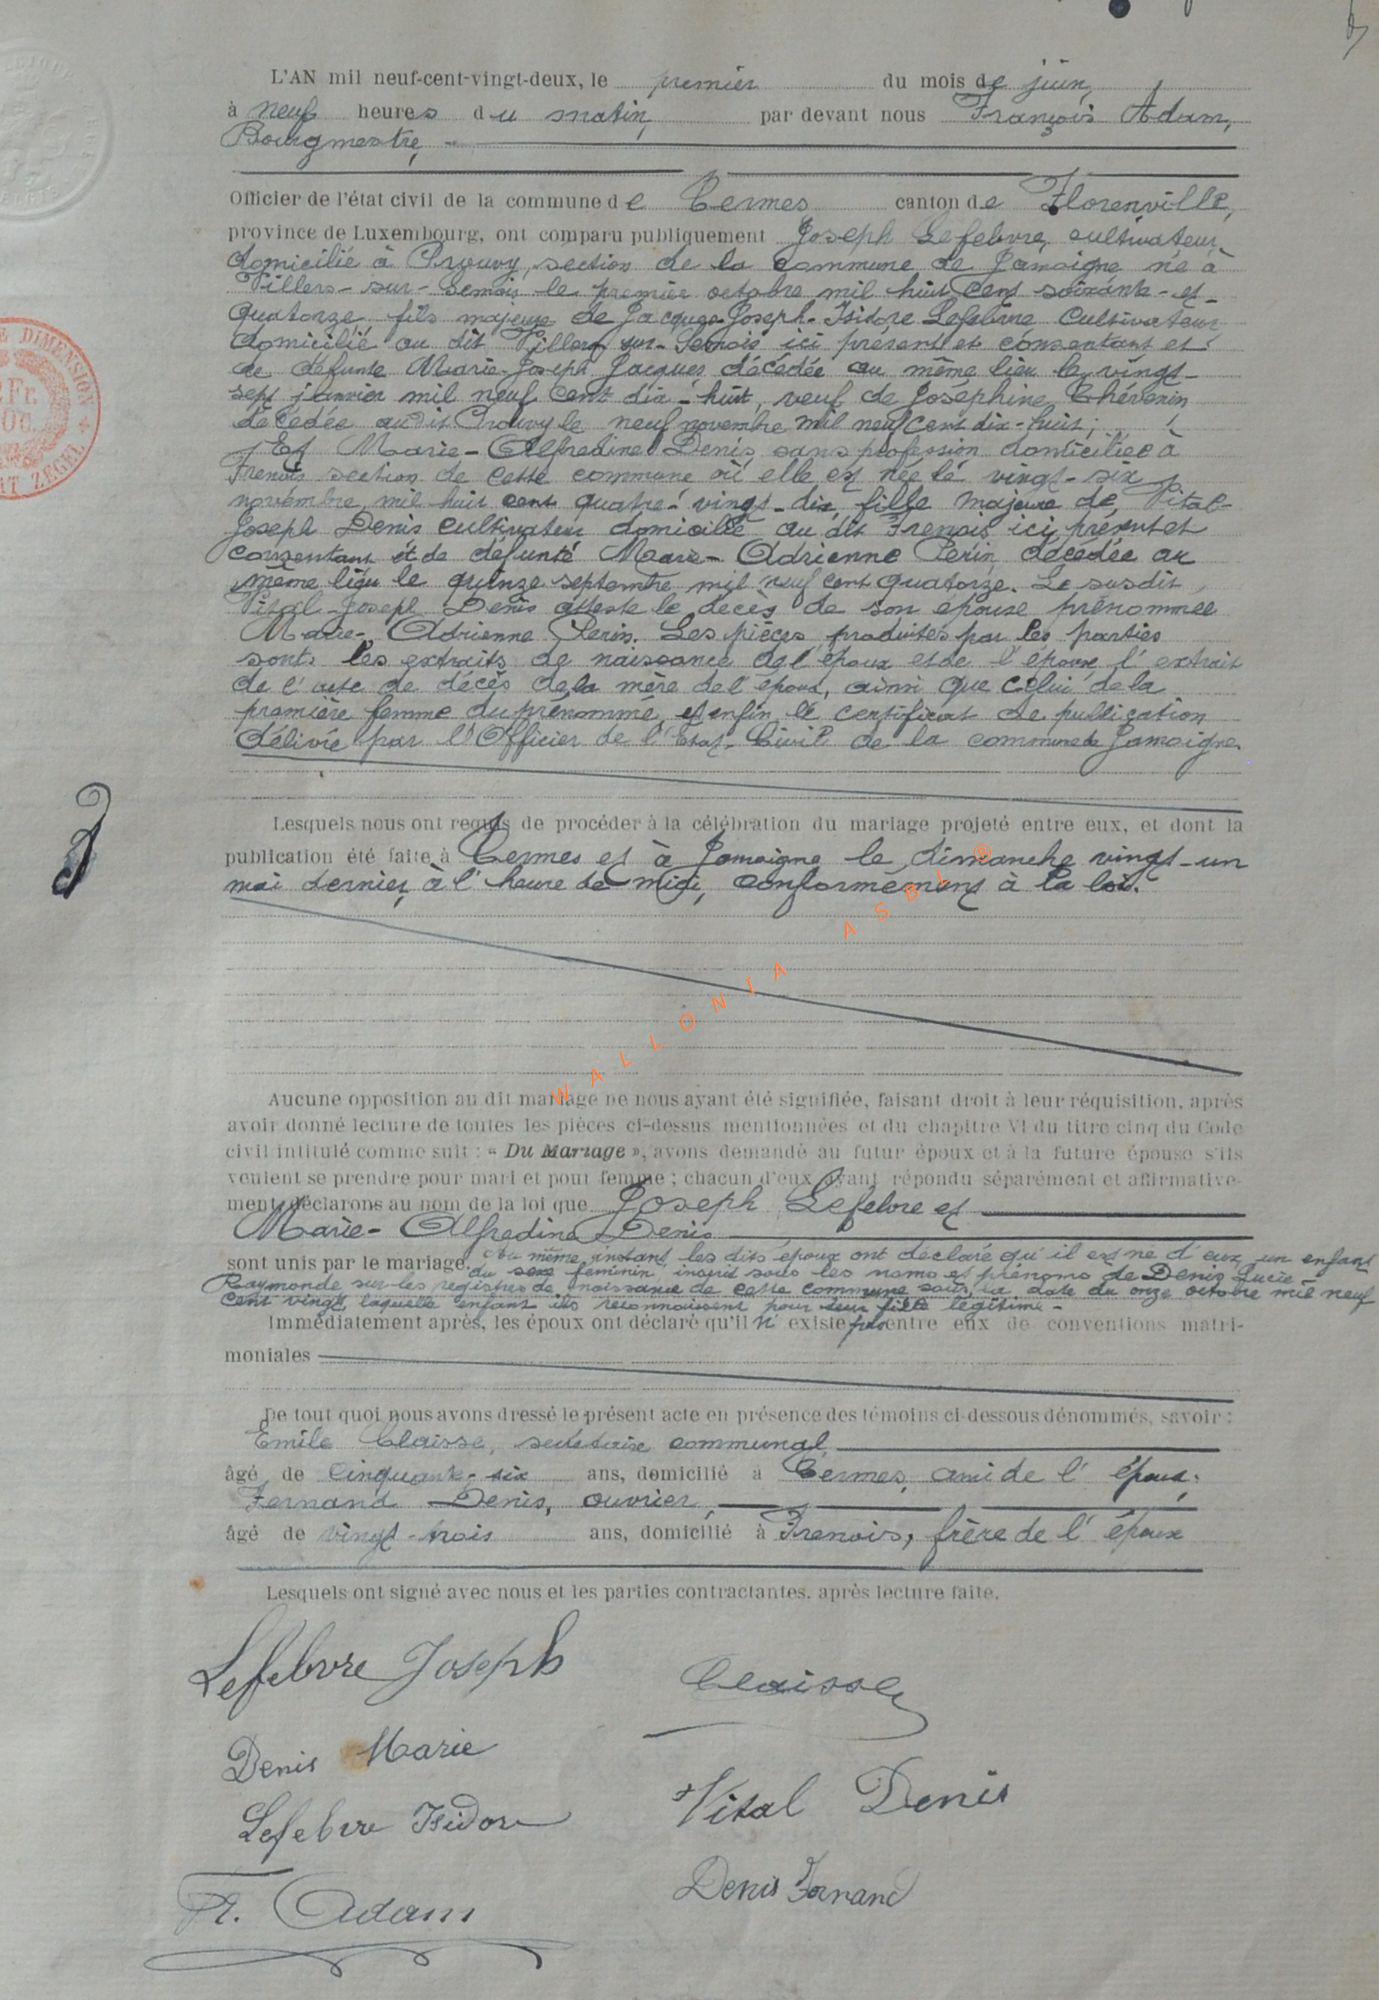 L'AN mil neuf-cent-vingt-deux, le premier du mois de juin,
à neuf heures du matin, par devant nous François Adam,
Bourgmestre,
Officier de l'état civil de la commune de Termes canton de Florenville,
province de Luxembourg, ont comparu publiquement Joseph Lefebvre, cultivateur,
domicilié à Prouvy, section de la commune de Jamoigne né à
Villers-sur-Semois le premier octobre mil huit cent soixante-et-
quatorze fils majeur de Jacques-Joseph-Isidore Lefebvre Cultivateur
domicilié au dit Villers sur-Semois ici présent et consentant et
de défunte Marie-Joseph Jacques décédée au même lieu le vingt-
sept janvier mil neuf cent dix-huit, veuf de Joséphine Thévenin
décédée audit Prouvy le neuf novembre mil neuf cent dix-huit;
Et Marie-Alfredine Denis sans profession domiciliée à
Frenois section de cette commune où elle est née le vingt-six
novembre mil huit cent quatre-vingt-dix, fille majeure de Vital-
Joseph Denis cultivateur domicilié au dit Frenois ici présent et
consentant et de défunte Marie-Adrienne Perin décédée au
même lieu le quinze septembre mil neuf cent quatorze. Le susdit
Vital-Joseph Denis atteste le décès de son épouse prénommée
Marie-Adrienne Perin. Les pièces produites par les parties
sont: les extraits de naissance de l'époux et de l'épouse, l'extrait
de l'acte de décès de la mère de l'époux, ainsi que celui de la
première femme du prénommé, et enfin le certificat de publication
délivré par l'Officier de l'Etat-Civil de la commune de Jamoigne.
Lesquels nous ont requis de procéder à la célébration du mariage projeté entre eux, et dont la
publication été faite à Termes et à Jamoigne le dimanche vingt-un
mai dernier, à l'heure de midi, conformément à la loi.
WALLONIA ASBL ®
Aucune opposition au dit mariage ne nous ayant été signifiée, faisant droit à leur réquisition, après
avoir donné lecture de toutes les pièces ci-dessus mentionnées et du chapitre VI du titre cinq du Code
civil intitulé comme suit : « Du Mariage », avons demandé au futur époux et à la future épouse s'ils
veulent se prendre pour mari et pour femme ; chacun d'eux ayant répondu séparément et affirmative-
ment, déclarons au nom de la loi que Joseph Lefebvre et
Marie-Alfredine Denis
sont unis par le mariage. Au même instant, les dits époux ont déclaré qu'il est né d'eux un enfant
du sexe feminin, inscrit sous les noms et prénoms de Denis Lucie
Raymonde sur les registres de naissance de cette commune sous la date du onze octobre mil neuf
cent vingt, laquelle enfant ils reconnaissent pour leur fille légitime-
Immédiatement après, les époux ont déclaré qu'il n'existe pas entre eux de conventions matri-
moniales
De tout quoi nous avons dressé le présent acte en présence des témoins ci-dessous dénommés, savoir :
Emile Claisse, secrétaire communal
âgé de cinquante-six ans, domicilié à Termes, ami de l'époux;
Fernand Denis, ouvrier,
âgé de vingt-trois ans, domicilié à Frenois, frère de l'épouse
Lesquels ont signé avec nous et les parties contractantes, après lecture faite.
Lefebvre Joseph
Claisse
Denis Marie
Vital Denis
Lefebvre Isidore
Denis Fernand
Fr. Adam